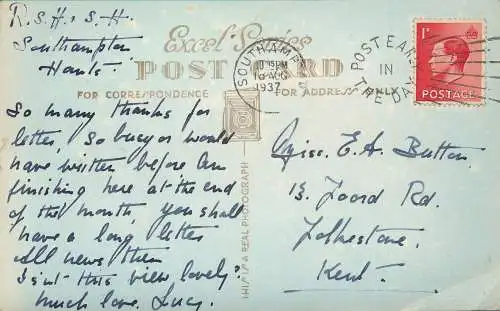 R.S.H. & S.H.
Southampton
Hants.
Excel Series
POST CARD
FOR CORRESPONDENCE
FOR ADDRESS ONLY
SOUTHAMPTON
10 15 PM
16 AUG
1937
POST EARLY
IN
THE DAY
1D
POSTAGE
THIS IS A REAL PHOTOGRAPH
So many thanks for
letter. So busy or would
have written before. Am
finishing here at the end
of the month, you shall
have a long letter
All news then
Isn't this view lovely?
Much love. Lucy.
Miss. E. A. Button.
13. Foord Rd.
Folkestone.
Kent.